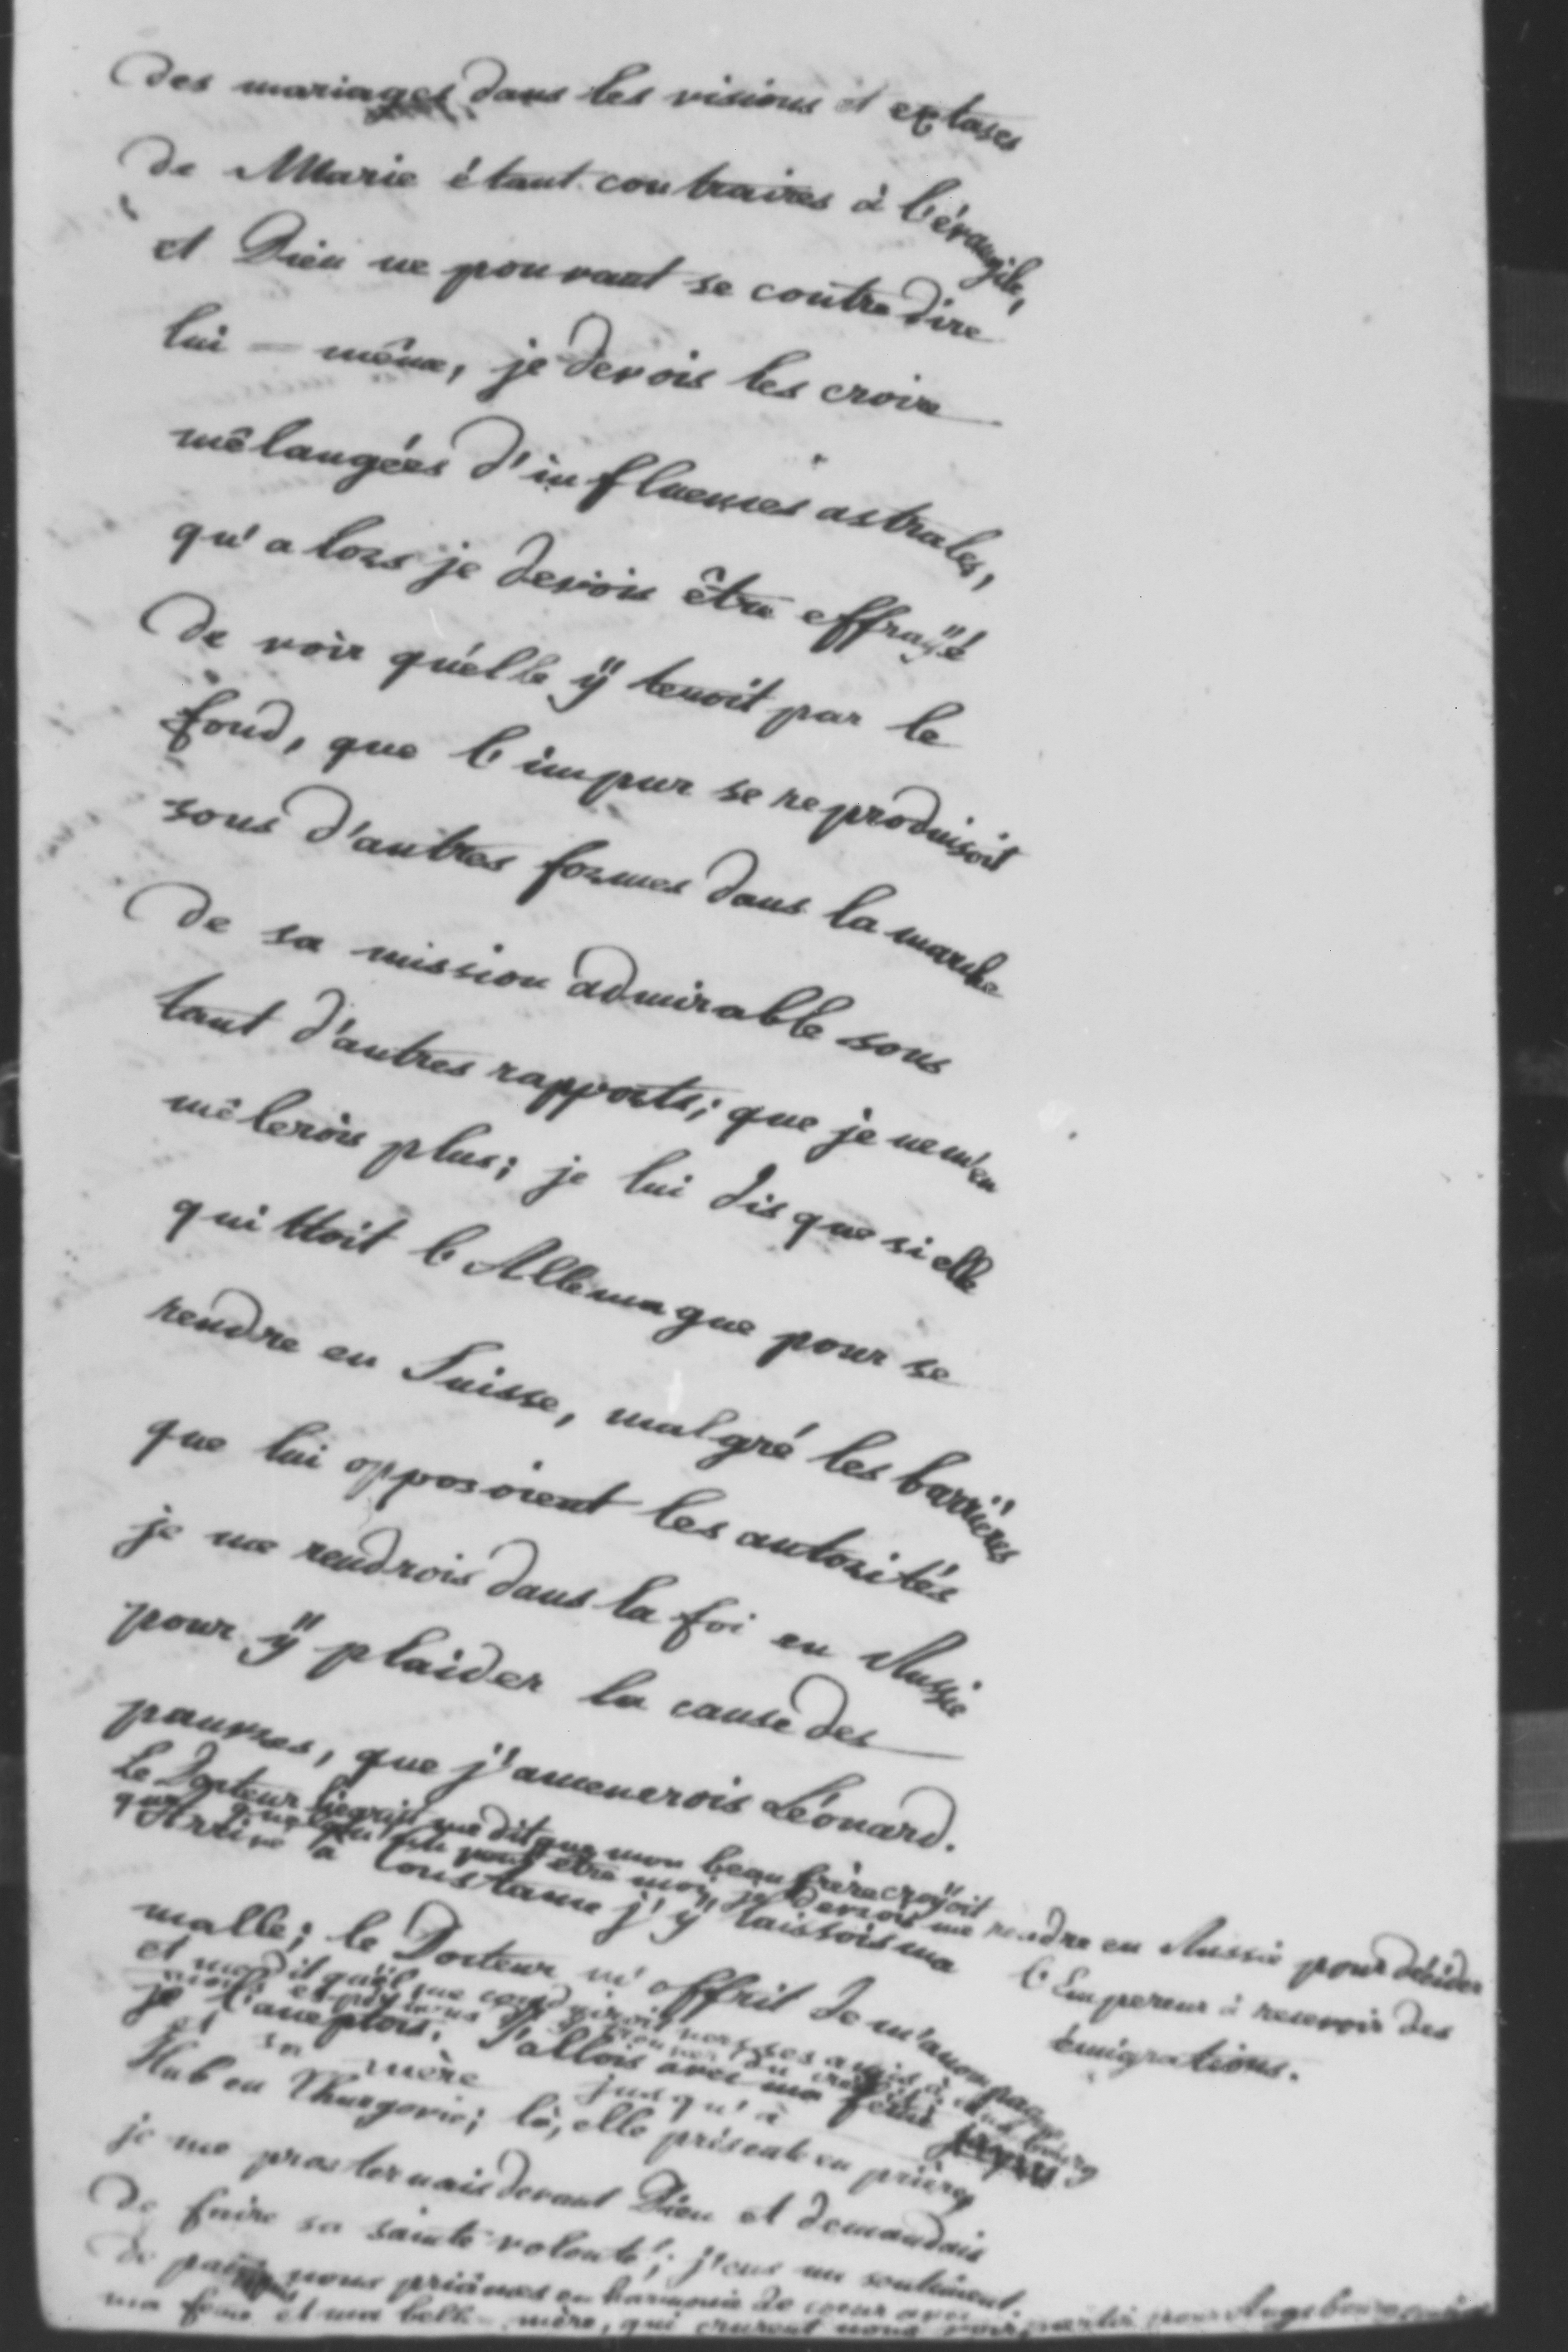 des mariages dans les visions et extases
de Marie étant contraires à l'évangile,
et Dieu ne pouvant se contredire
lui-même, je devois les croire
mêlangées d'influences astrales,
qu'alors je devois être effraÿé
de voir qu'elle ÿ tenoit par le
fond, que l'impur se reproduisoit
sous d'autres formes dans la marche
de sa mission admirable sous
tant d'autres rapports; que je ne m'en
mêlerois plus; je lui dis que si elle
quittoit l'Allemagne pour se
rendre en Suisse, malgré les barrières
que lui opposoient les autorités
je me rendrois dans la foi en Russie
pour ÿ plaider la cause des
pauvres, que j'amenerois Léonard.
Le Docteur me dit que mon beau frère croÿoit
que peut être moi, je devrois me rendre en Russie pour décider
l'Empereur à recevoir des
émigrations.
Arrivé à Constance j'ÿ laissois ma
malle; le Docteur m'offrit de m'accompagner
et me dit qu'il me conduiroit vers ses amis à
je l'acceptois. J'allois avec ma feme
et sa mère jusqu'à
Hub en Thurgovie; là, elle présente en prières
je me prosternais devant Dieu et demandais
de faire sa sainte volonté; j'eus un sentiment
de paix nous priâmes en harmonie de coeur avec
ma feme et ma belle-mère, qui crurent nous voir partir pour Augsbourg